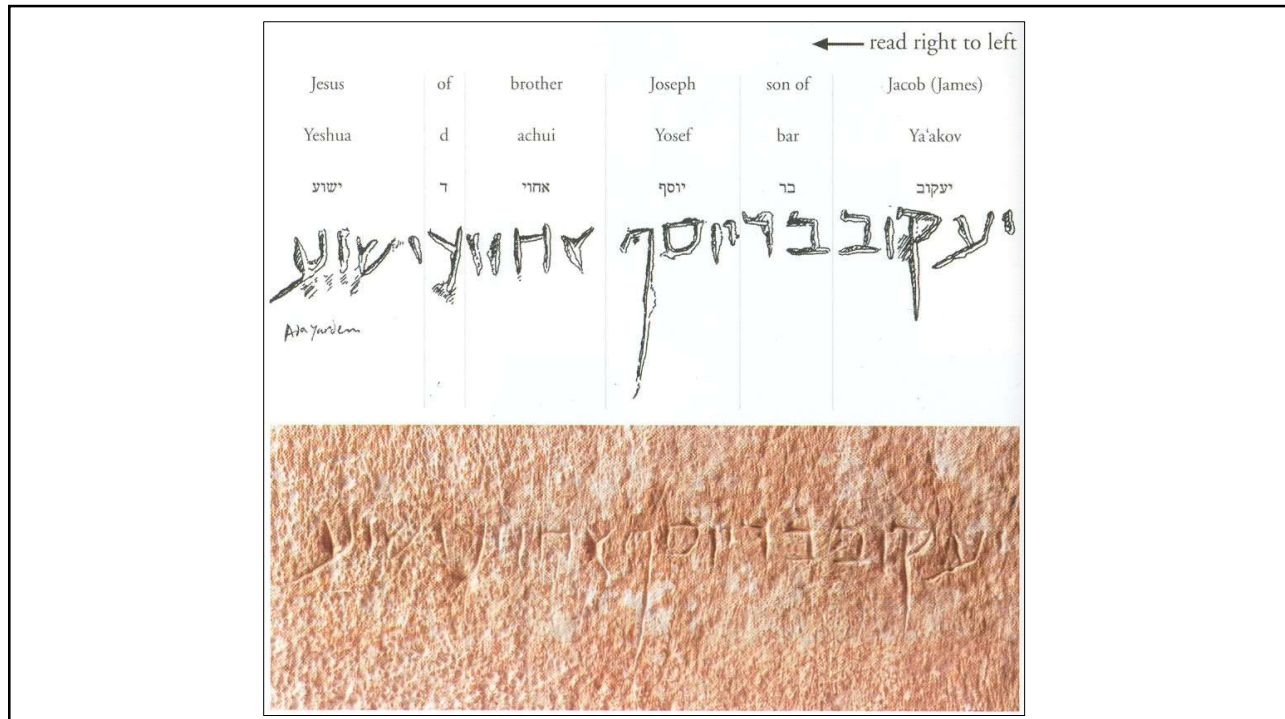 ← read right to left
Jesus of brother Joseph son of Jacob (James)
Yeshua d achui Yosef bar Ya'akov
יעקוב בר יוסף אחוי ד ישוע
יעקוב בר יוסף אחוי דישוע
Ada Yardeni
יעקוב בר יוסף אחוי דישוע